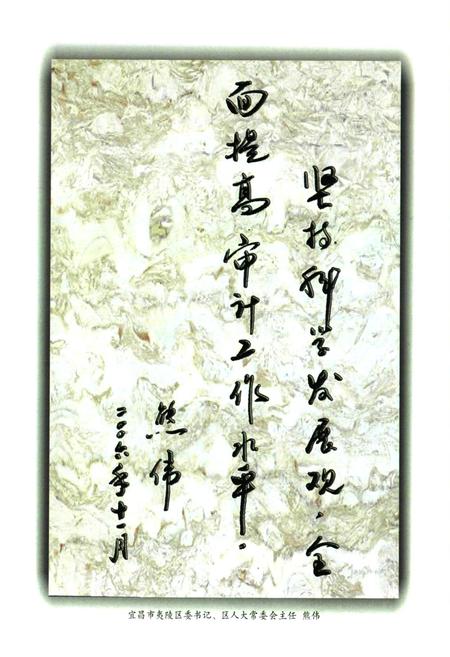 坚持科学发展观，全
面提高审计工作水平。
熊伟
二〇〇六年十一月
宜昌市夷陵区委书记、区人大常委会主任 熊伟